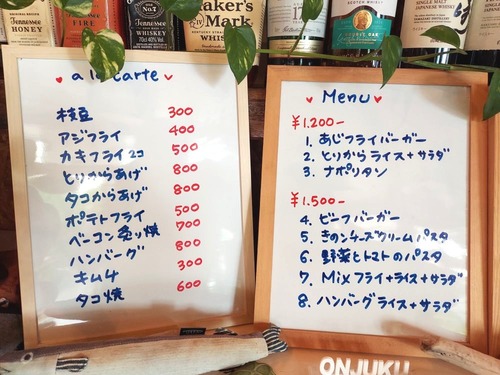 ORIGINAL RECIPE
Tennessee
HONEY
Tennessee
FIRE
No.7
Tennessee
WHISKEY
70cl 40% Vol.
Maker's
Mark
WHISKY
SCOTCH WHISKY
SINGLE MALT
JAPANESE WHISKY
a la carte
枝豆 300
アジフライ 400
カキフライ2コ 500
とりからあげ 800
タコからあげ 800
ポテトフライ 500
ベーコン炙り焼 700
ハンバーグ 800
キムチ 300
タコ焼 600
Menu
¥1.200-
1. あじフライバーガー
2. とりからライス+サラダ
3. ナポリタン
¥1.500-
4. ビーフバーガー
5. きのこチーズクリームパスタ
6. 野菜とトマトのパスタ
7. Mixフライ+ライス+サラダ
8. ハンバーグライス+サラダ
ONJUKU